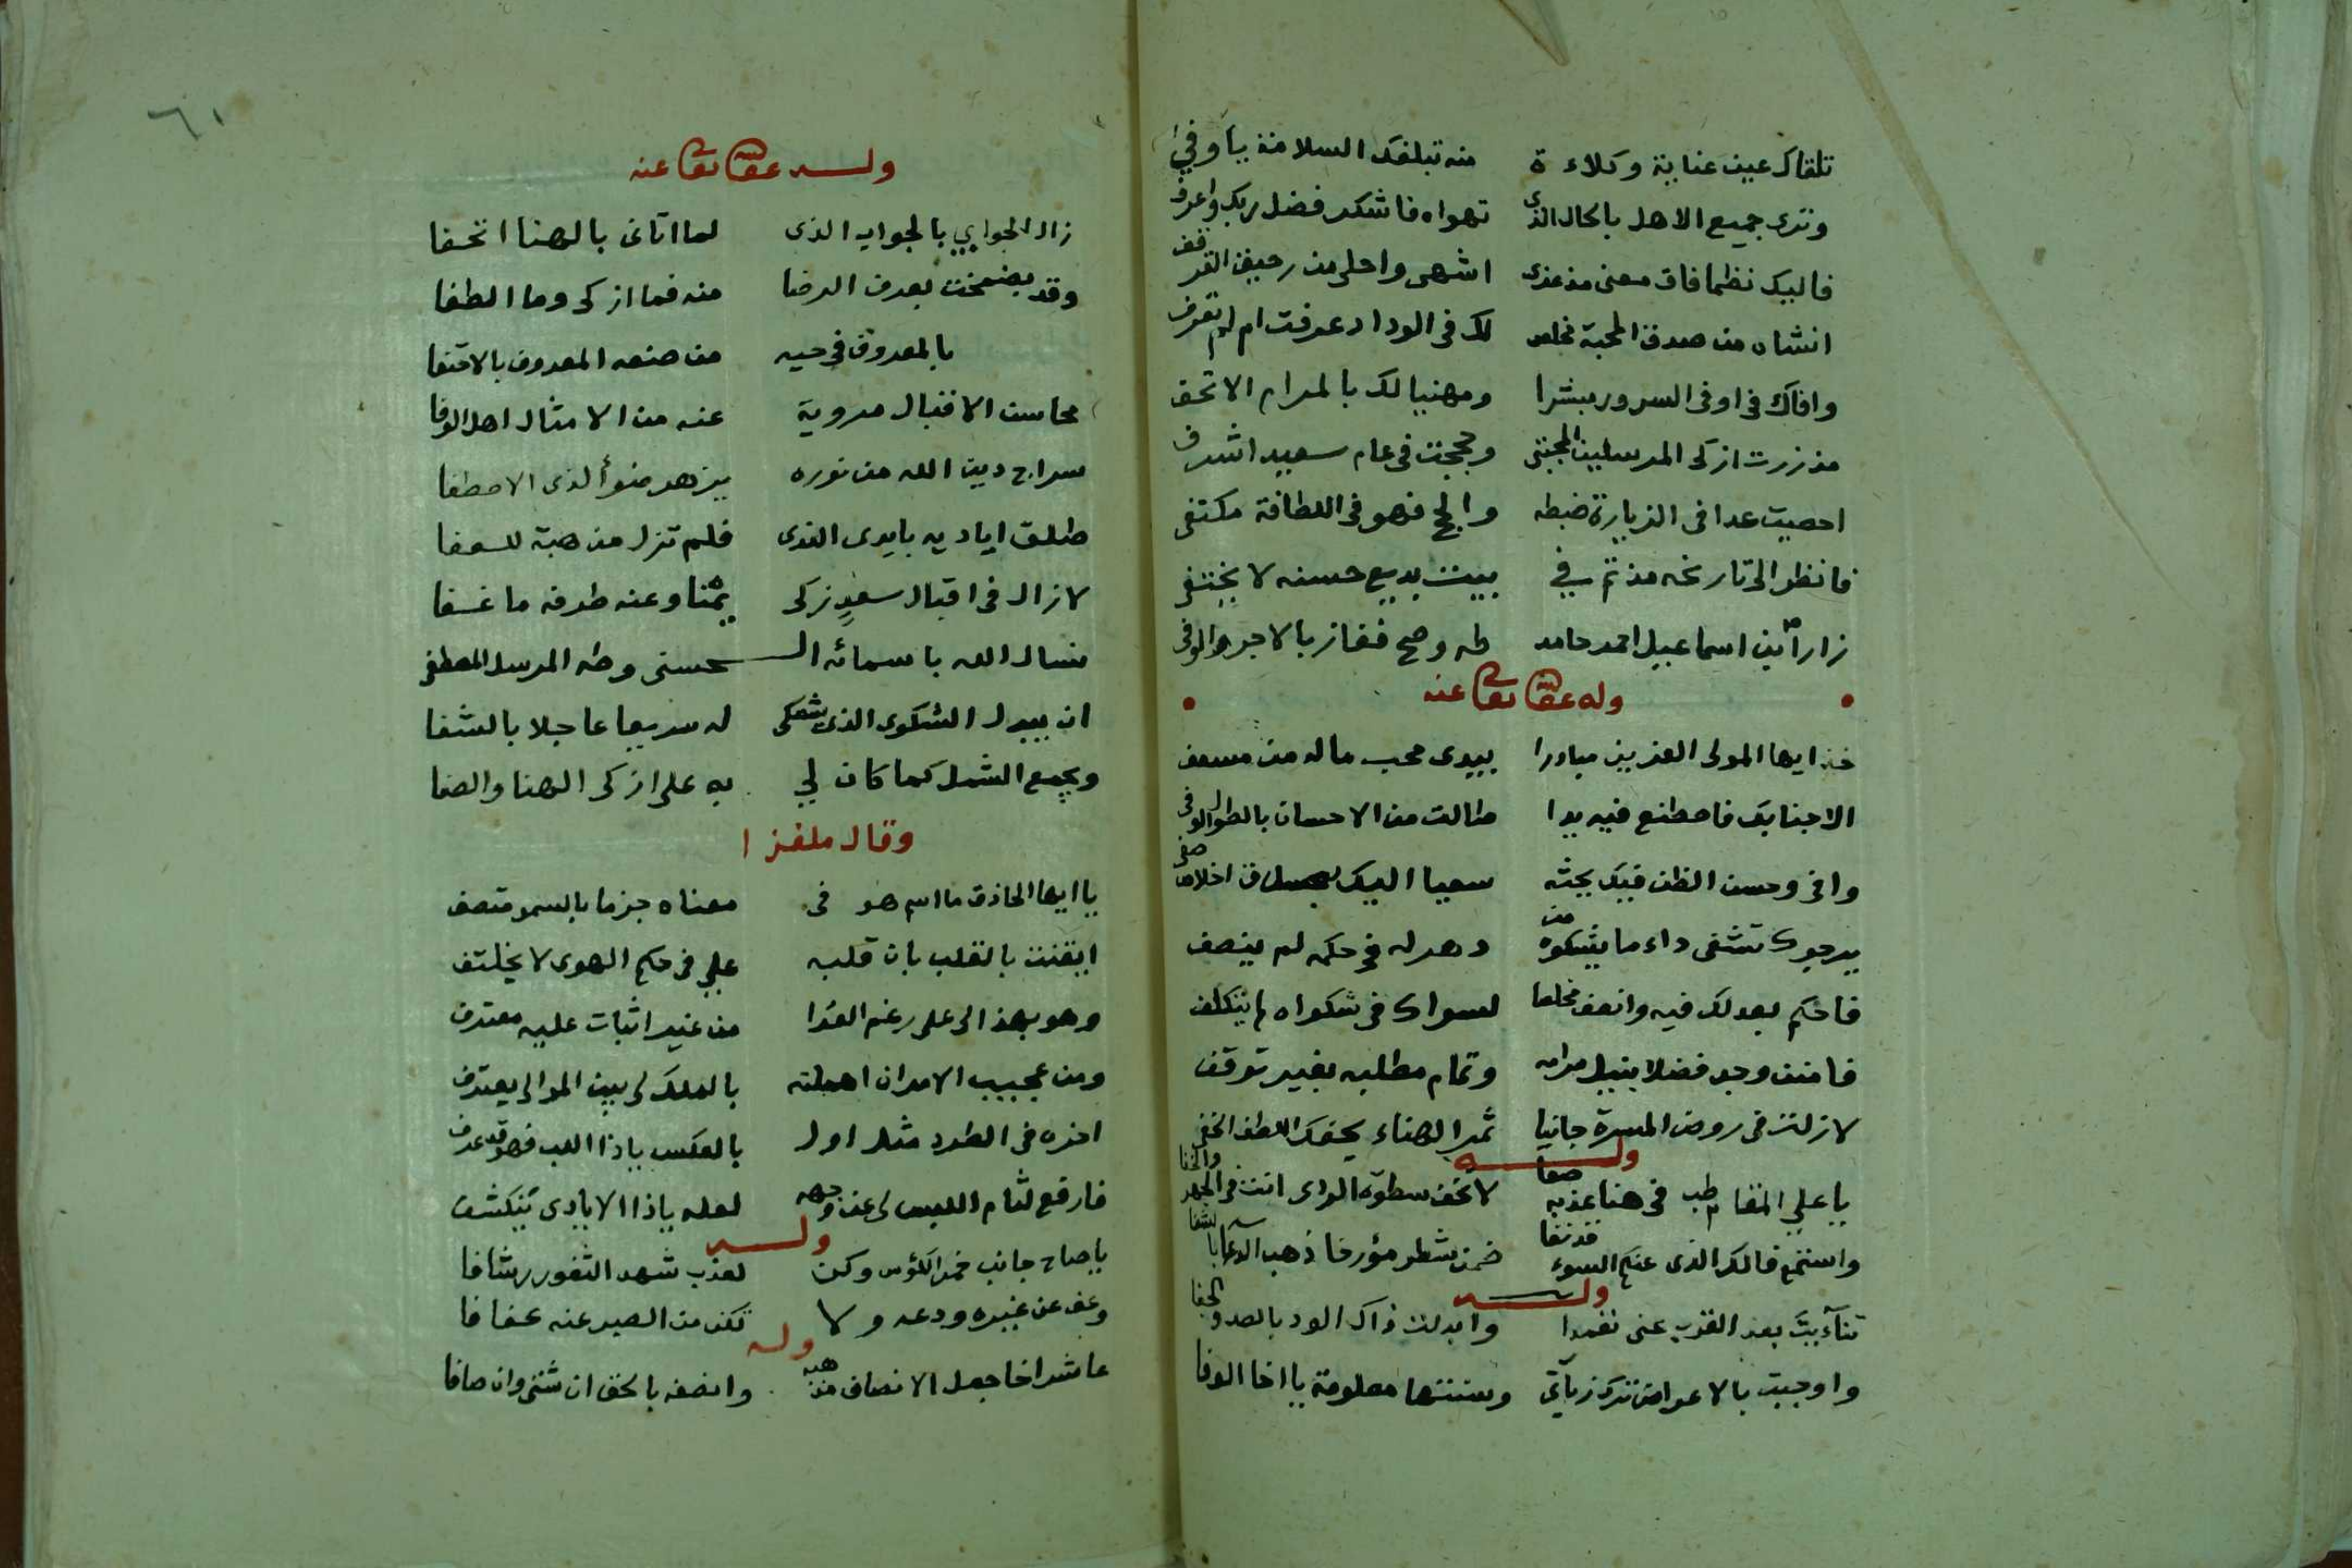 تلقاك عين عناية وكلاءة منه تبلغك السلامة يا وفي
وترى جميع الاهل بالحال الذى تهواه فاشكر فضل ربك واعرف
فاليك نظما فاق معنى مذ غدى اشهى واحلى من رحيق القرقف
انشاه من صدق المحبة مخلص لك فى الوداد عرفت ام لم تعرف
وافاك فى اوفى السرور مبشرا ومهنيا لك بالمرام الاتحف
مذ زرت ازكى المرسلين المجتبى وحججت فى عام سعيد اشرف
احصيت عدا فى الزيارة ضبطه والحج فهو فى اللطافة مكتفى
فانظر الى تاريخه مذ تم في بيت بديع حسنه لا يختفى
زار امين اسماعيل احمد حامد طه وحج ففاز بالاجر الوفى
وله عفا الله تعالى عنه
خذ ايها المولى العزيز مبادرا بيدى محب ماله من مسعف
الا جنابك فاصطنع فيه يدا طالت من الاحسان بالطول الوفى
وافى وحسن الظن فيك يحثه سعيا اليك اخلاص صفى
يرجوك تشفى داء ما يشكوه من دهر له فى حكمه لم ينصف
فاحكم بعدلك فيه وانصف مخلصا لسواك فى شكواه لم يتكلف
فامنن وجد فضلا بنيل مرامه وتمام مطلبه بغير توقف
لا زلت فى روض المسرة جانيا ثمر الهناء يحفك اللطف الخفى
وله
يا علي المقام طب فى هنا عذبه صفا لا تخف سطوة الورى انت فى الجهر والخفا
واستمع فالك الذى عنكم السوء قد نفا ضمن شطر مؤرخا ذهب الدعا بالشفا
وله
تنآءيت بعد القرب عنى تعمدا وابدلت ذاك الود بالصد والجفا
واوجبت بالاعراض ترك زيارتي وسننتها معلومة يا اخا الوفا
٦١
وله عفا الله تعالى عنه
زال الجوا بي بالجواب الذى لما اتانى بالهنا اتحفا
وقد تضمخت بعرف الرضا منه فما ازكى وما الطفا
بالمعروف فى حيه من صنعه المعروف بالاقتفا
محاسن الاقبال مروية عنه من الامثال اهل الوفا
سراج دين الله من نوره يزهر ضوأ لذى الاصطفا
طلق اياديه بايدى الندى فلم تزل مذهبة للعفا
لا زال فى اقبال سعد زكى يمنا وعنه طرفه ما غفا
نسال الله باسمائه الـحسنى وطه المرسل المصطفى
ان يبدل الشكوى الذى تشتكى له سريعا عاجلا بالشفا
ويجمع الشمل كما كان لي به على ازكى الهنا والصفا
وقال ملغزا
يا ايها الحاذق ما اسم هو فى معناه جزما بالسمو متصف
ايقنت بالقلب بان قلبه علي فى حكم الهوى لا يختلف
وهو بهذا لى على رغم العدا من غير اثبات عليه معترف
ومن عجيب الامر ان اهملته بالملك لى بين الموالى يعترف
اخره فى الطرد مثل اول بالعكس يا ذا اللب فهو قد عرف
فارفع لثام اللبس لى عن وجهه لعله يا ذا الايادى ينكشف
وله
يا صاح جانب خمر الكؤس وكن لعذب شهد الثغور رشافا
وعف عن غيره ودعه ولا تكن من الصبر عنه عفافا
وله
عاشر اخا جعل الانصاف مذهبه وانصفه بالحق ان شتى وان صافا